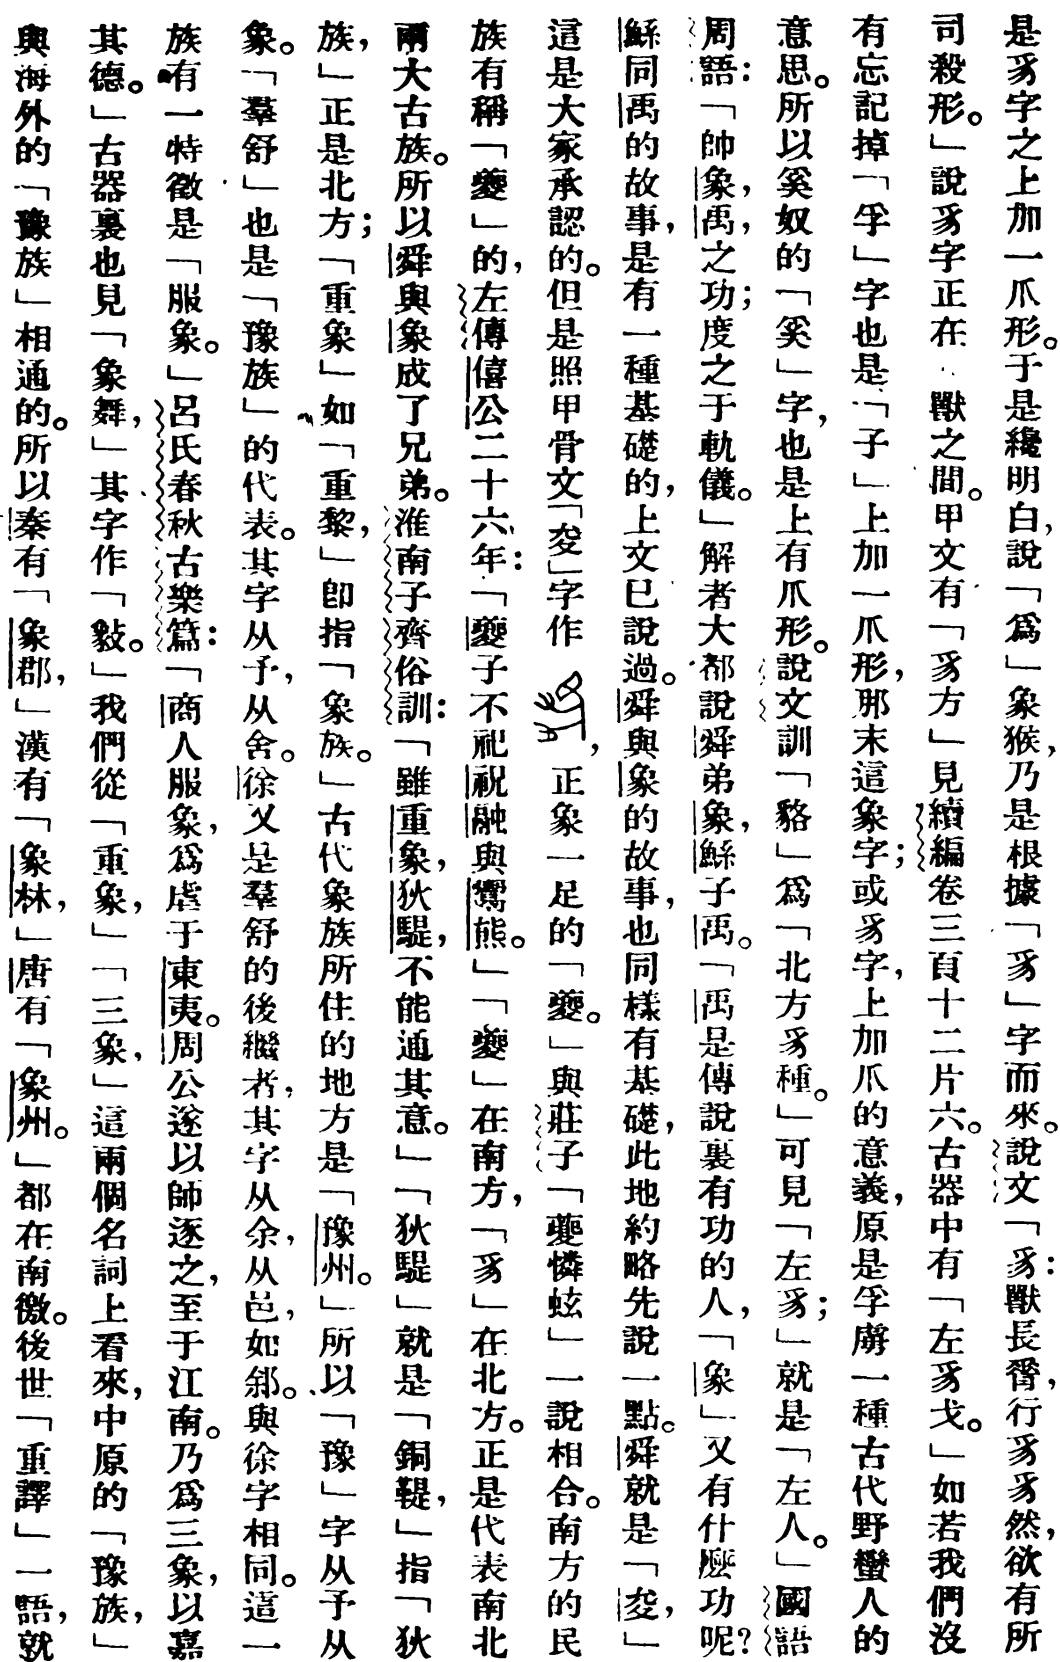 是豸字之上加一爪形。于是纔明白，說「爲」象猴，乃是根據「豸」字而來。說文「豸：獸長脊，行豸豸然，欲有所
司殺形。」說豸字正在獸之間。甲文有「豸方」見續編卷三頁十二片六。古器中有「左豸戈。」如若我們沒
有忘記掉「孚」字也是「子」上加一爪形，那末這象字；或豸字，上加爪的意義，原是孚虜一種古代野蠻人的
意思。所以奚奴的「奚」字，也是上有爪形。說文訓「貉」爲「北方豸種。」可見「左豸；」就是「左人。」國語
周語：「帥象，禹，之功；度之于軌儀。」解者大都說舜弟象，鯀子禹。「禹是傳說裏有功的人，「象」又有什麼功呢？
鯀同禹的故事，是有一種基礎的，上文已說過。舜與象的故事，也同樣有基礎，此地約略先說一點。舜就是「夋，」
這是大家承認的。但是照甲骨文「夋」字作，正象一足的「夔。」與莊子「夔憐蚿」一說相合。南方的民
族有稱「夔」的，左傳僖公二十六年：「夔子不祀祝融與鬻熊。」「夔」在南方，「豸」在北方。正是代表南北
兩大古族。所以舜與象成了兄弟。淮南子齊俗訓：「雖重象，狄騠，不能通其意。」「狄騠」就是「銅鞮，」指「狄
族，」正是北方；「重象」如「重黎，」卽指「象族。」古代象族所住的地方是「豫州。」所以「豫」字从予从
象。「羣舒」也是「豫族」的代表。其字从予，从舍。徐又是羣舒的後繼者，其字从余，从邑，如䣄。與徐字相同。這一
族有一特徵是「服象。」呂氏春秋古樂篇：「商人服象，爲虐于東夷。周公遂以師逐之，至于江南。乃爲三象，以嘉
其德。」古器裏也見「象舞，」其字作「㲋。」我們從「重象，」「三象，」這兩個名詞上看來，中原的「豫族，」
與海外的「豫族」相通的。所以秦有「象郡，」漢有「象林，」唐有「象州。」都在南徼。後世「重譯」一語，就